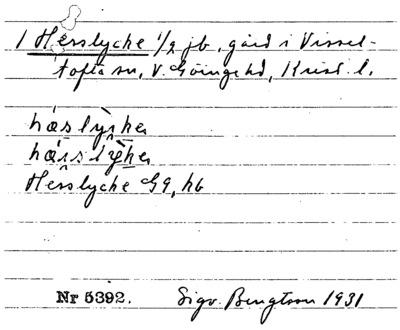 1 Hesslycke 1/2 jb, gård i Vissel-
tofta sn, V. Göinge hd, Krist. l.
hæslyꞥka
hæslyka
Hesslycke GG, hb
Nr 5392. Sigv. Bengtson 1931